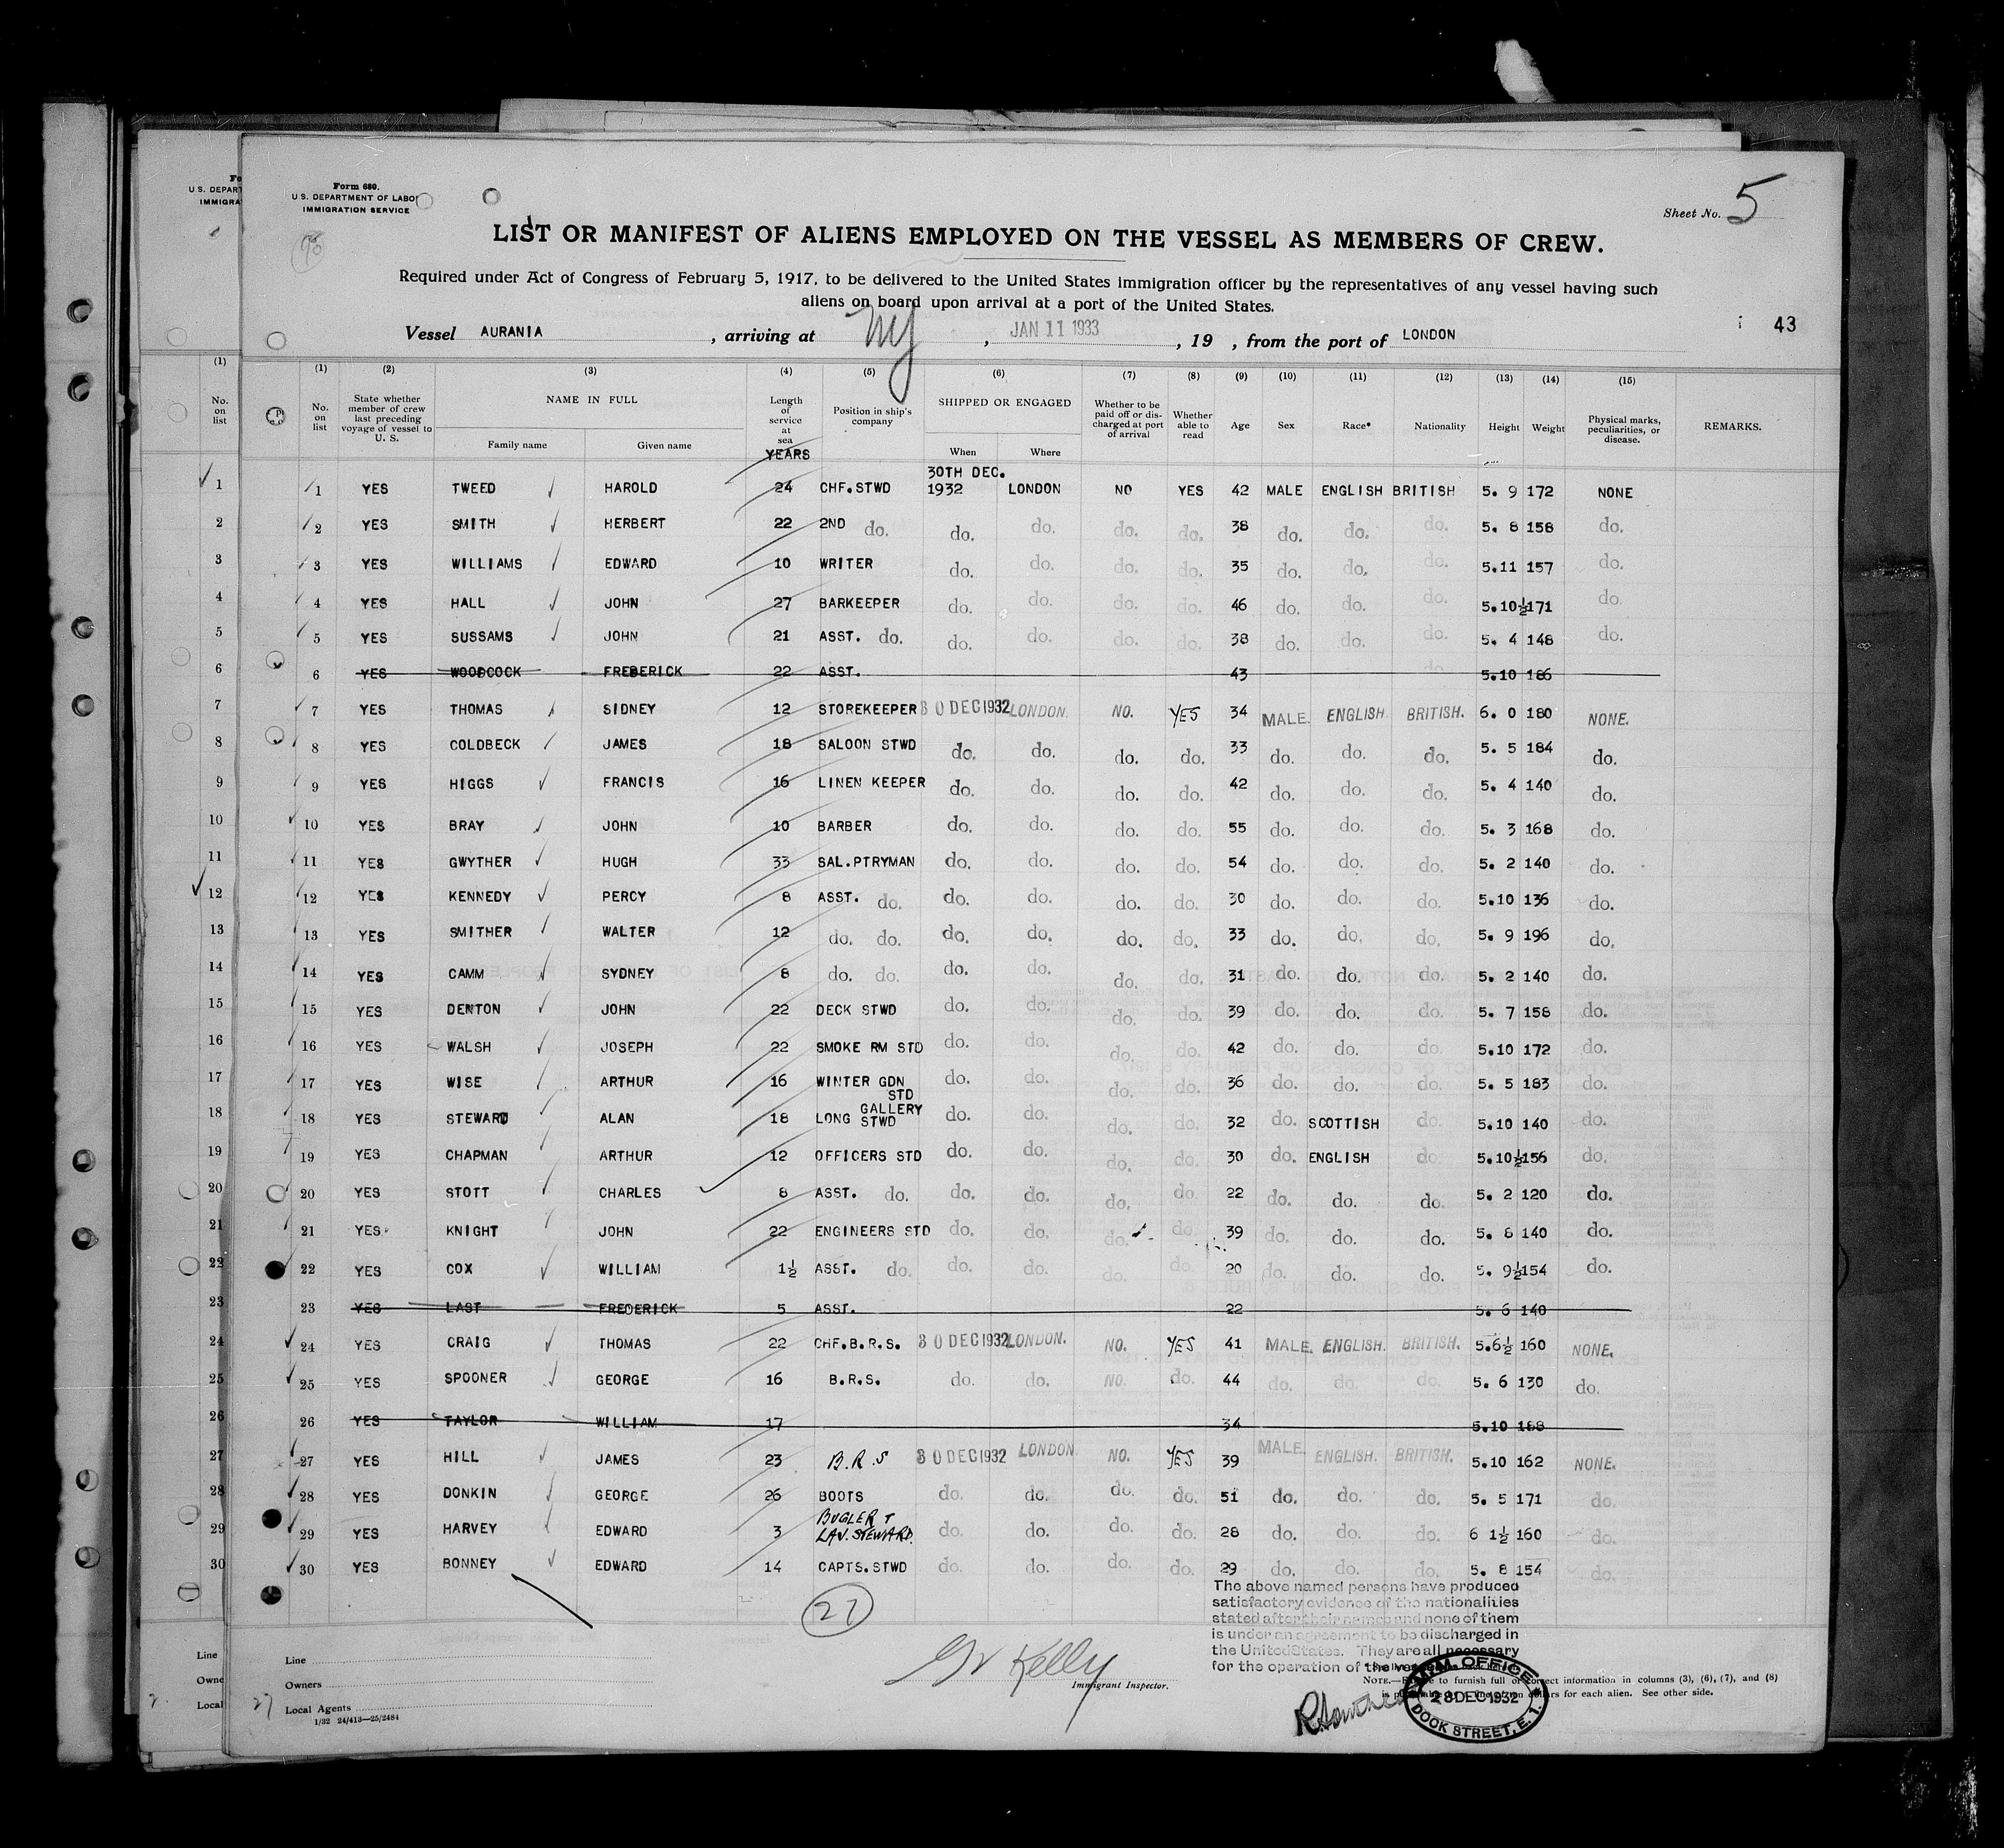 Form 680.
U. S. DEPARTMENT OF LABOR
IMMIGRATION SERVICE
Sheet No. 5
LIST OR MANIFEST OF ALIENS EMPLOYED ON THE VESSEL AS MEMBERS OF CREW.
Required under Act of Congress of February 5, 1917, to be delivered to the United States immigration officer by the representatives of any vessel having such
aliens on board upon arrival at a port of the United States.
Vessel AURANIA , arriving at NY , JAN 11 1933 , 19 , from the port of LONDON
43
(1) (2) (3) (4) (5) (6) (7) (8) (9) (10) (11) (12) (13) (14) (15)
No. on list State whether member of crew last preceding voyage of vessel to U. S. NAME IN FULL Family name Given name Length of service at sea YEARS Position in ship's company SHIPPED OR ENGAGED When Where Whether to be paid off or discharged at port of arrival Whether able to read Age Sex Race* Nationality Height Weight Physical marks, peculiarities, or disease. REMARKS.
1 YES TWEED HAROLD 24 CHF.STWD 30TH DEC. 1932 LONDON NO YES 42 MALE ENGLISH BRITISH 5. 9 172 NONE
2 YES SMITH HERBERT 22 2ND do. do. do. do. do. 38 do. do. do. 5. 8 158 do.
3 YES WILLIAMS EDWARD 10 WRITER do. do. do. do. 35 do. do. do. 5.11 157 do.
4 YES HALL JOHN 27 BARKEEPER do. do. do. do. 46 do. do. do. 5.10½ 171 do.
5 YES SUSSAMS JOHN 21 ASST. do. do. do. do. do. 38 do. do. do. 5. 4 148 do.
6 YES WOODCOCK FREDERICK 22 ASST. 43 do. 5.10 186
7 YES THOMAS SIDNEY 12 STOREKEEPER 30 DEC 1932 LONDON. NO. YES 34 MALE. ENGLISH. BRITISH. 6. 0 180 NONE.
8 YES COLDBECK JAMES 18 SALOON STWD do. do. do. do. 33 do. do. do. 5. 5 184 do.
9 YES HIGGS FRANCIS 16 LINEN KEEPER do. do. do. do. 42 do. do. do. 5. 4 140 do.
10 YES BRAY JOHN 10 BARBER do. do. do. do. 55 do. do. do. 5. 3 168 do.
11 YES GWYTHER HUGH 33 SAL.PTRYMAN do. do. do. do. 54 do. do. do. 5. 2 140 do.
12 YES KENNEDY PERCY 8 ASST. do. do. do. do. do. 30 do. do. do. 5.10 136 do.
13 YES SMITHER WALTER 12 do. do. do. do. do. do. 33 do. do. do. 5. 9 196 do.
14 YES CAMM SYDNEY 8 do. do. do. do. do. do. 31 do. do. do. 5. 2 140 do.
15 YES DENTON JOHN 22 DECK STWD do. do. do. do. 39 do. do. do. 5. 7 158 do.
16 YES WALSH JOSEPH 22 SMOKE RM STD do. do. do. do. 42 do. do. do. 5.10 172 do.
17 YES WISE ARTHUR 16 WINTER GDN STD do. do. do. do. 36 do. do. do. 5. 5 183 do.
18 YES STEWARD ALAN 18 LONG GALLERY STWD do. do. do. do. 32 do. SCOTTISH do. 5.10 140 do.
19 YES CHAPMAN ARTHUR 12 OFFICERS STD do. do. do. do. 30 do. ENGLISH do. 5.10½ 156 do.
20 YES STOTT CHARLES 8 ASST. do. do. do. do. do. 22 do. do. do. 5. 2 120 do.
21 YES KNIGHT JOHN 22 ENGINEERS STD do. do. do. do. 39 do. do. do. 5. 8 140 do.
22 YES COX WILLIAM 1½ ASST. do. do. do. do. do. 20 do. do. do. 5. 9½ 154 do.
23 YES LAST FREDERICK 5 ASST. 22 5. 6 140
24 YES CRAIG THOMAS 22 CHF.B.R.S. 30 DEC 1932 LONDON. NO. YES 41 MALE. ENGLISH. BRITISH. 5.6½ 160 NONE.
25 YES SPOONER GEORGE 16 B.R.S. do. do. NO. do. 44 do. do. do. 5. 6 130 do.
26 YES TAYLOR WILLIAM 17 34 5.10 188
27 YES HILL JAMES 23 B.R.S 30 DEC 1932 LONDON NO. YES 39 MALE ENGLISH. BRITISH. 5.10 162 NONE.
28 YES DONKIN GEORGE 26 BOOTS do. do. do. do. 51 do. do. do. 5. 5 171 do.
29 YES HARVEY EDWARD 3 BUGLER + LAV. STEWARD. do. do. do. do. 28 do. do. do. 6 1½ 160 do.
30 YES BONNEY EDWARD 14 CAPTS.STWD do. do. do. do. 29 do. do. do. 5. 8 154 do.
27
The above named persons have produced
satisfactory evidence of the nationalities
stated after their names and none of them
is under an agreement to be discharged in
the United States. They are all necessary
for the operation of the
Line
Owners
Local Agents
1/32 24/413—25/2484
27
Kelly
Immigrant Inspector.
NOTE.— to furnish full or correct information in columns (3), (6), (7), and (8)
for each alien. See other side.
M.M. OFFICE
28 DEC 1932
DOCK STREET, E. 1.